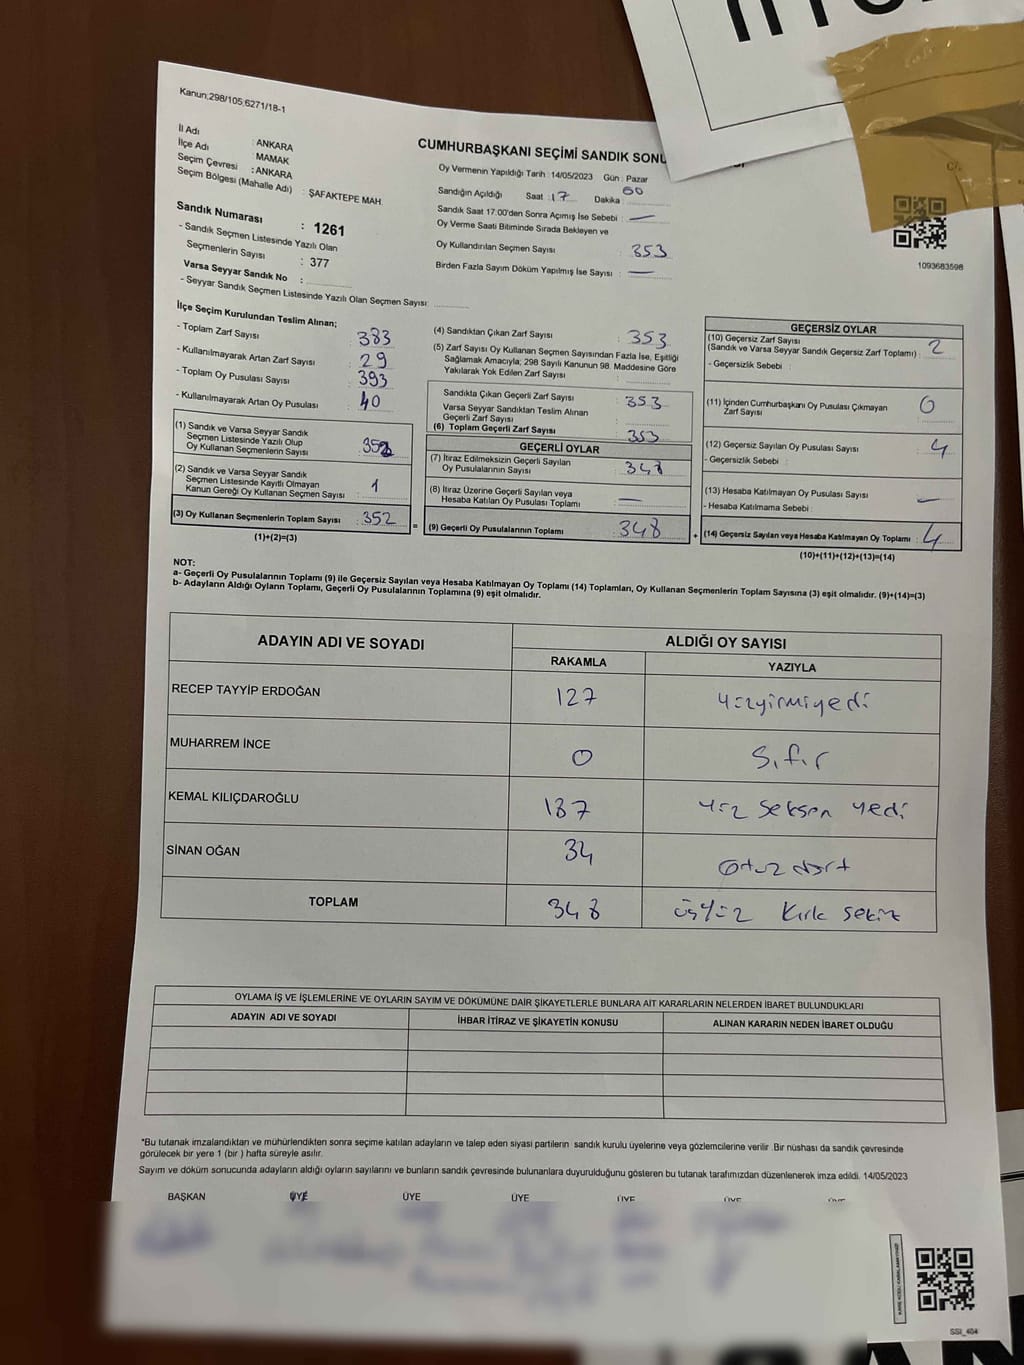 Kanun;298/105;6271/18-1
İl Adı : ANKARA
İlçe Adı MAMAK
Seçim Çevresi : ANKARA
Seçim Bölgesi (Mahalle Adı) : ŞAFAKTEPE MAH.
Sandık Numarası : 1261
- Sandık Seçmen Listesinde Yazılı Olan
Seçmenlerin Sayısı : 377
Varsa Seyyar Sandık No :
- Seyyar Sandık Seçmen Listesinde Yazılı Olan Seçmen Sayısı:
CUMHURBAŞKANI SEÇİMİ SANDIK SONU
Oy Vermenin Yapıldığı Tarih :14/05/2023 Gün : Pazar
Sandığın Açıldığı Saat :17 Dakika 00
Sandık Saat 17:00'den Sonra Açımış İse Sebebi : —
Oy Verme Saati Bitiminde Sırada Bekleyen ve
Oy Kullandırılan Seçmen Sayısı : 353
Birden Fazla Sayım Döküm Yapılmış İse Sayısı : —
1093683598
İlçe Seçim Kurulundan Teslim Alınan;
- Toplam Zarf Sayısı : 383
- Kullanılmayarak Artan Zarf Sayısı : 29
- Toplam Oy Pusulası Sayısı : 393
- Kullanılmayarak Artan Oy Pusulası : 40
(1) Sandık ve Varsa Seyyar Sandık
Seçmen Listesinde Yazılı Olup
Oy Kullanan Seçmenlerin Sayısı
(2) Sandık ve Varsa Seyyar Sandık
Seçmen Listesinde Kayıtlı Olmayan
Kanun Gereği Oy Kullanan Seçmen Sayısı : 1
(3) Oy Kullanan Seçmenlerin Toplam Sayısı : 352
(1)+(2)=(3)
(4) Sandıktan Çıkan Zarf Sayısı : 353
(5) Zarf Sayısı Oy Kullanan Seçmen Sayısından Fazla İse, Eşitliği
Sağlamak Amacıyla; 298 Sayılı Kanunun 98. Maddesine Göre
Yakılarak Yok Edilen Zarf Sayısı :
Sandıkta Çıkan Geçerli Zarf Sayısı : 353
Varsa Seyyar Sandıktan Teslim Alınan
Geçerli Zarf Sayısı :
(6) Toplam Geçerli Zarf Sayısı : 353
GEÇERLİ OYLAR
(7) İtiraz Edilmeksizin Geçerli Sayılan
Oy Pusulalarının Sayısı : 348
(8) İtiraz Üzerine Geçerli Sayılan veya
Hesaba Katılan Oy Pusulası Toplamı : —
= (9) Geçerli Oy Pusulalarının Toplamı : 348
GEÇERSİZ OYLAR
(10) Geçersiz Zarf Sayısı
(Sandık ve Varsa Seyyar Sandık Geçersiz Zarf Toplamı) : 2
- Geçersizlik Sebebi :
(11) İçinden Cumhurbaşkanı Oy Pusulası Çıkmayan
Zarf Sayısı : 0
(12) Geçersiz Sayılan Oy Pusulası Sayısı : 4
- Geçersizlik Sebebi :
(13) Hesaba Katılmayan Oy Pusulası Sayısı : —
- Hesaba Katılmama Sebebi :
+ (14) Geçersiz Sayılan veya Hesaba Katılmayan Oy Toplamı : 4
(10)+(11)+(12)+(13)=(14)
NOT:
a- Geçerli Oy Pusulalarının Toplamı (9) ile Geçersiz Sayılan veya Hesaba Katılmayan Oy Toplamı (14) Toplamları, Oy Kullanan Seçmenlerin Toplam Sayısına (3) eşit olmalıdır. (9)+(14)=(3)
b- Adayların Aldığı Oyların Toplamı, Geçerli Oy Pusulalarının Toplamına (9) eşit olmalıdır.
ADAYIN ADI VE SOYADI ALDIĞI OY SAYISI
RAKAMLA YAZIYLA
RECEP TAYYİP ERDOĞAN 127 yüzyirmiyedi
MUHARREM İNCE 0 Sıfır
KEMAL KILIÇDAROĞLU 187 yüz seksen yedi
SİNAN OĞAN 34 Otuz dört
TOPLAM 348 üçyüz kırk sekiz
OYLAMA İŞ VE İŞLEMLERİNE VE OYLARIN SAYIM VE DÖKÜMÜNE DAİR ŞİKAYETLERLE BUNLARA AİT KARARLARIN NELERDEN İBARET BULUNDUKLARI
ADAYIN ADI VE SOYADI İHBAR İTİRAZ VE ŞİKAYETİN KONUSU ALINAN KARARIN NEDEN İBARET OLDUĞU
*Bu tutanak imzalandıktan ve mühürlendikten sonra seçime katılan adayların ve talep eden siyasi partilerin sandık kurulu üyelerine veya gözlemcilerine verilir .Bir nüshası da sandık çevresinde
görülecek bir yere 1 (bir ) hafta süreyle asılır.
Sayım ve döküm sonucunda adayların aldığı oyların sayılarını ve bunların sandık çevresinde bulunanlara duyurulduğunu gösteren bu tutanak tarafımızdan düzenlenerek imza edildi. 14/05/2023
BAŞKAN ÜYE ÜYE ÜYE ÜYE ÜYE ÜYE
SSI_404